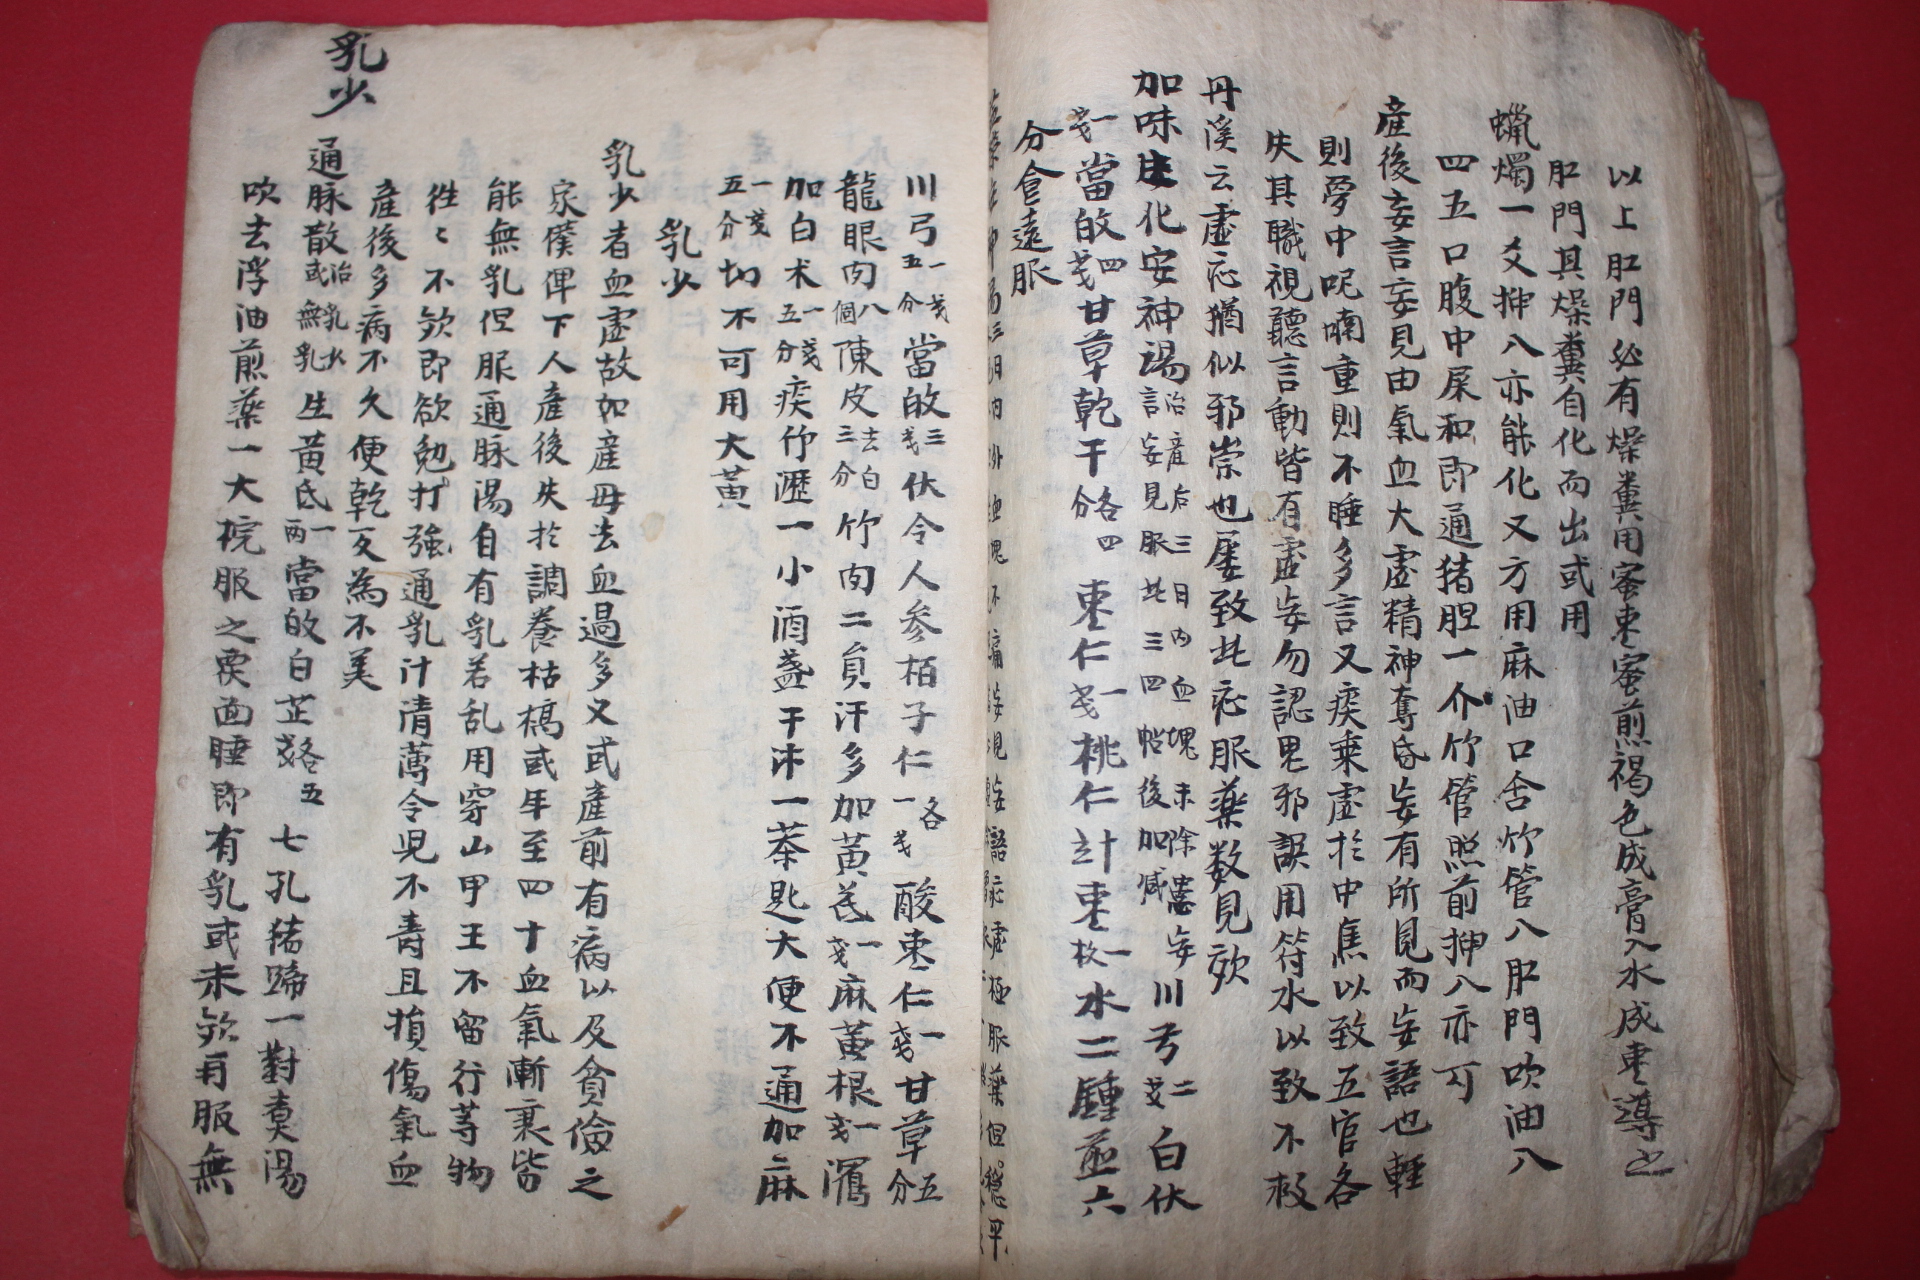 以上肛門必有燥糞用蜜枣蜜煎褐色成膏入水成枣導之
肛門其燥糞自化而出或用
蠟燭一支抻入亦能化又方用麻油口含竹管入肛門吹油八
四五口腹中屎和即通猪胆一个竹管照前抻入亦可
產後妄言妄見由氣血大虚精神奪昏妄有所見而妄語也輕
則夢中呢喃重則不睡多言又痰乘虚於中焦以致五官各
失其職視聽言動皆有虚妄勿認鬼邪誤用符水以致不救
丹溪云虚症猶似邪祟也屡致此症服藥数見効
加味生化安神湯
治產后三日内血塊未除患妄
言妄見服此三四帖後加减
川芎二戔白伏
一戔當皈四戔甘草乾干各四分枣仁一戔桃仁計枣一枚水二鍾煎六
分食遠服
川弓一戔五分當皈三戔伏令人参栢子仁各一戔酸枣仁一戔甘草五分
龍眼肉八個陳皮去白三分竹肉二員汗多加黄芪一戔麻黄根一戔瀉
加白术一戔五分痰竹瀝一小酒盏干沭一茶匙大便不通加二麻
一戔五分切不可用大黄
乳少
乳少者血虚故如產母去血過多又或產前有病以及貧儉之
家僕俾下人產後失於調養枯槁或年至四十血氣漸衰皆
能無乳但服通脉湯自有乳若乱用穿山甲王不留行等物
徃々不効即欲勉打強通乳汁清薄令児不青且損傷氣血
產後多病不久便乾反為不美
乳少
通脉散治乳少或無乳生黄氏一両當皈白芷各五戔七孔猪蹄一對煑湯
吹去浮油煎藥一大椀服之覆面睡即有乳或未効再服無